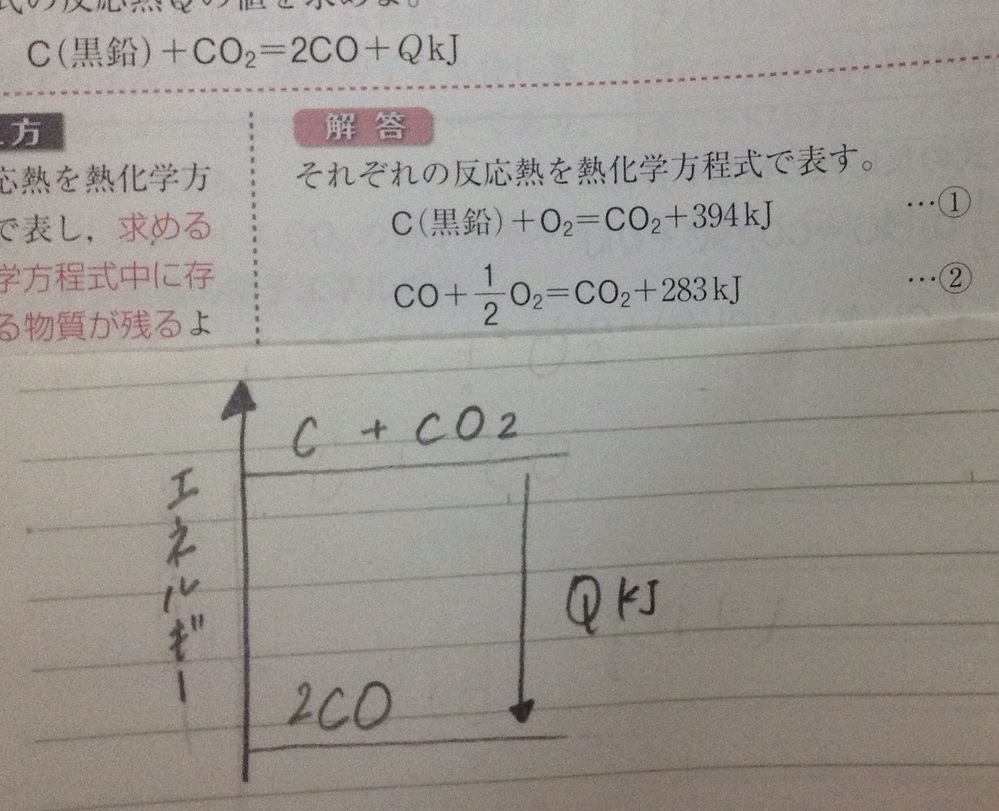 式の反応熱Qの値を求めよ。
C(黒鉛)+CO₂=2CO+QkJ
え方
応熱を熱化学方
で表し，求める
学方程式中に存
る物質が残るよ
解答
それぞれの反応熱を熱化学方程式で表す。
C(黒鉛)+O₂=CO₂+394kJ …①
CO+1/2O₂=CO₂+283kJ …②
C + CO₂
エネルギー
QkJ
2CO